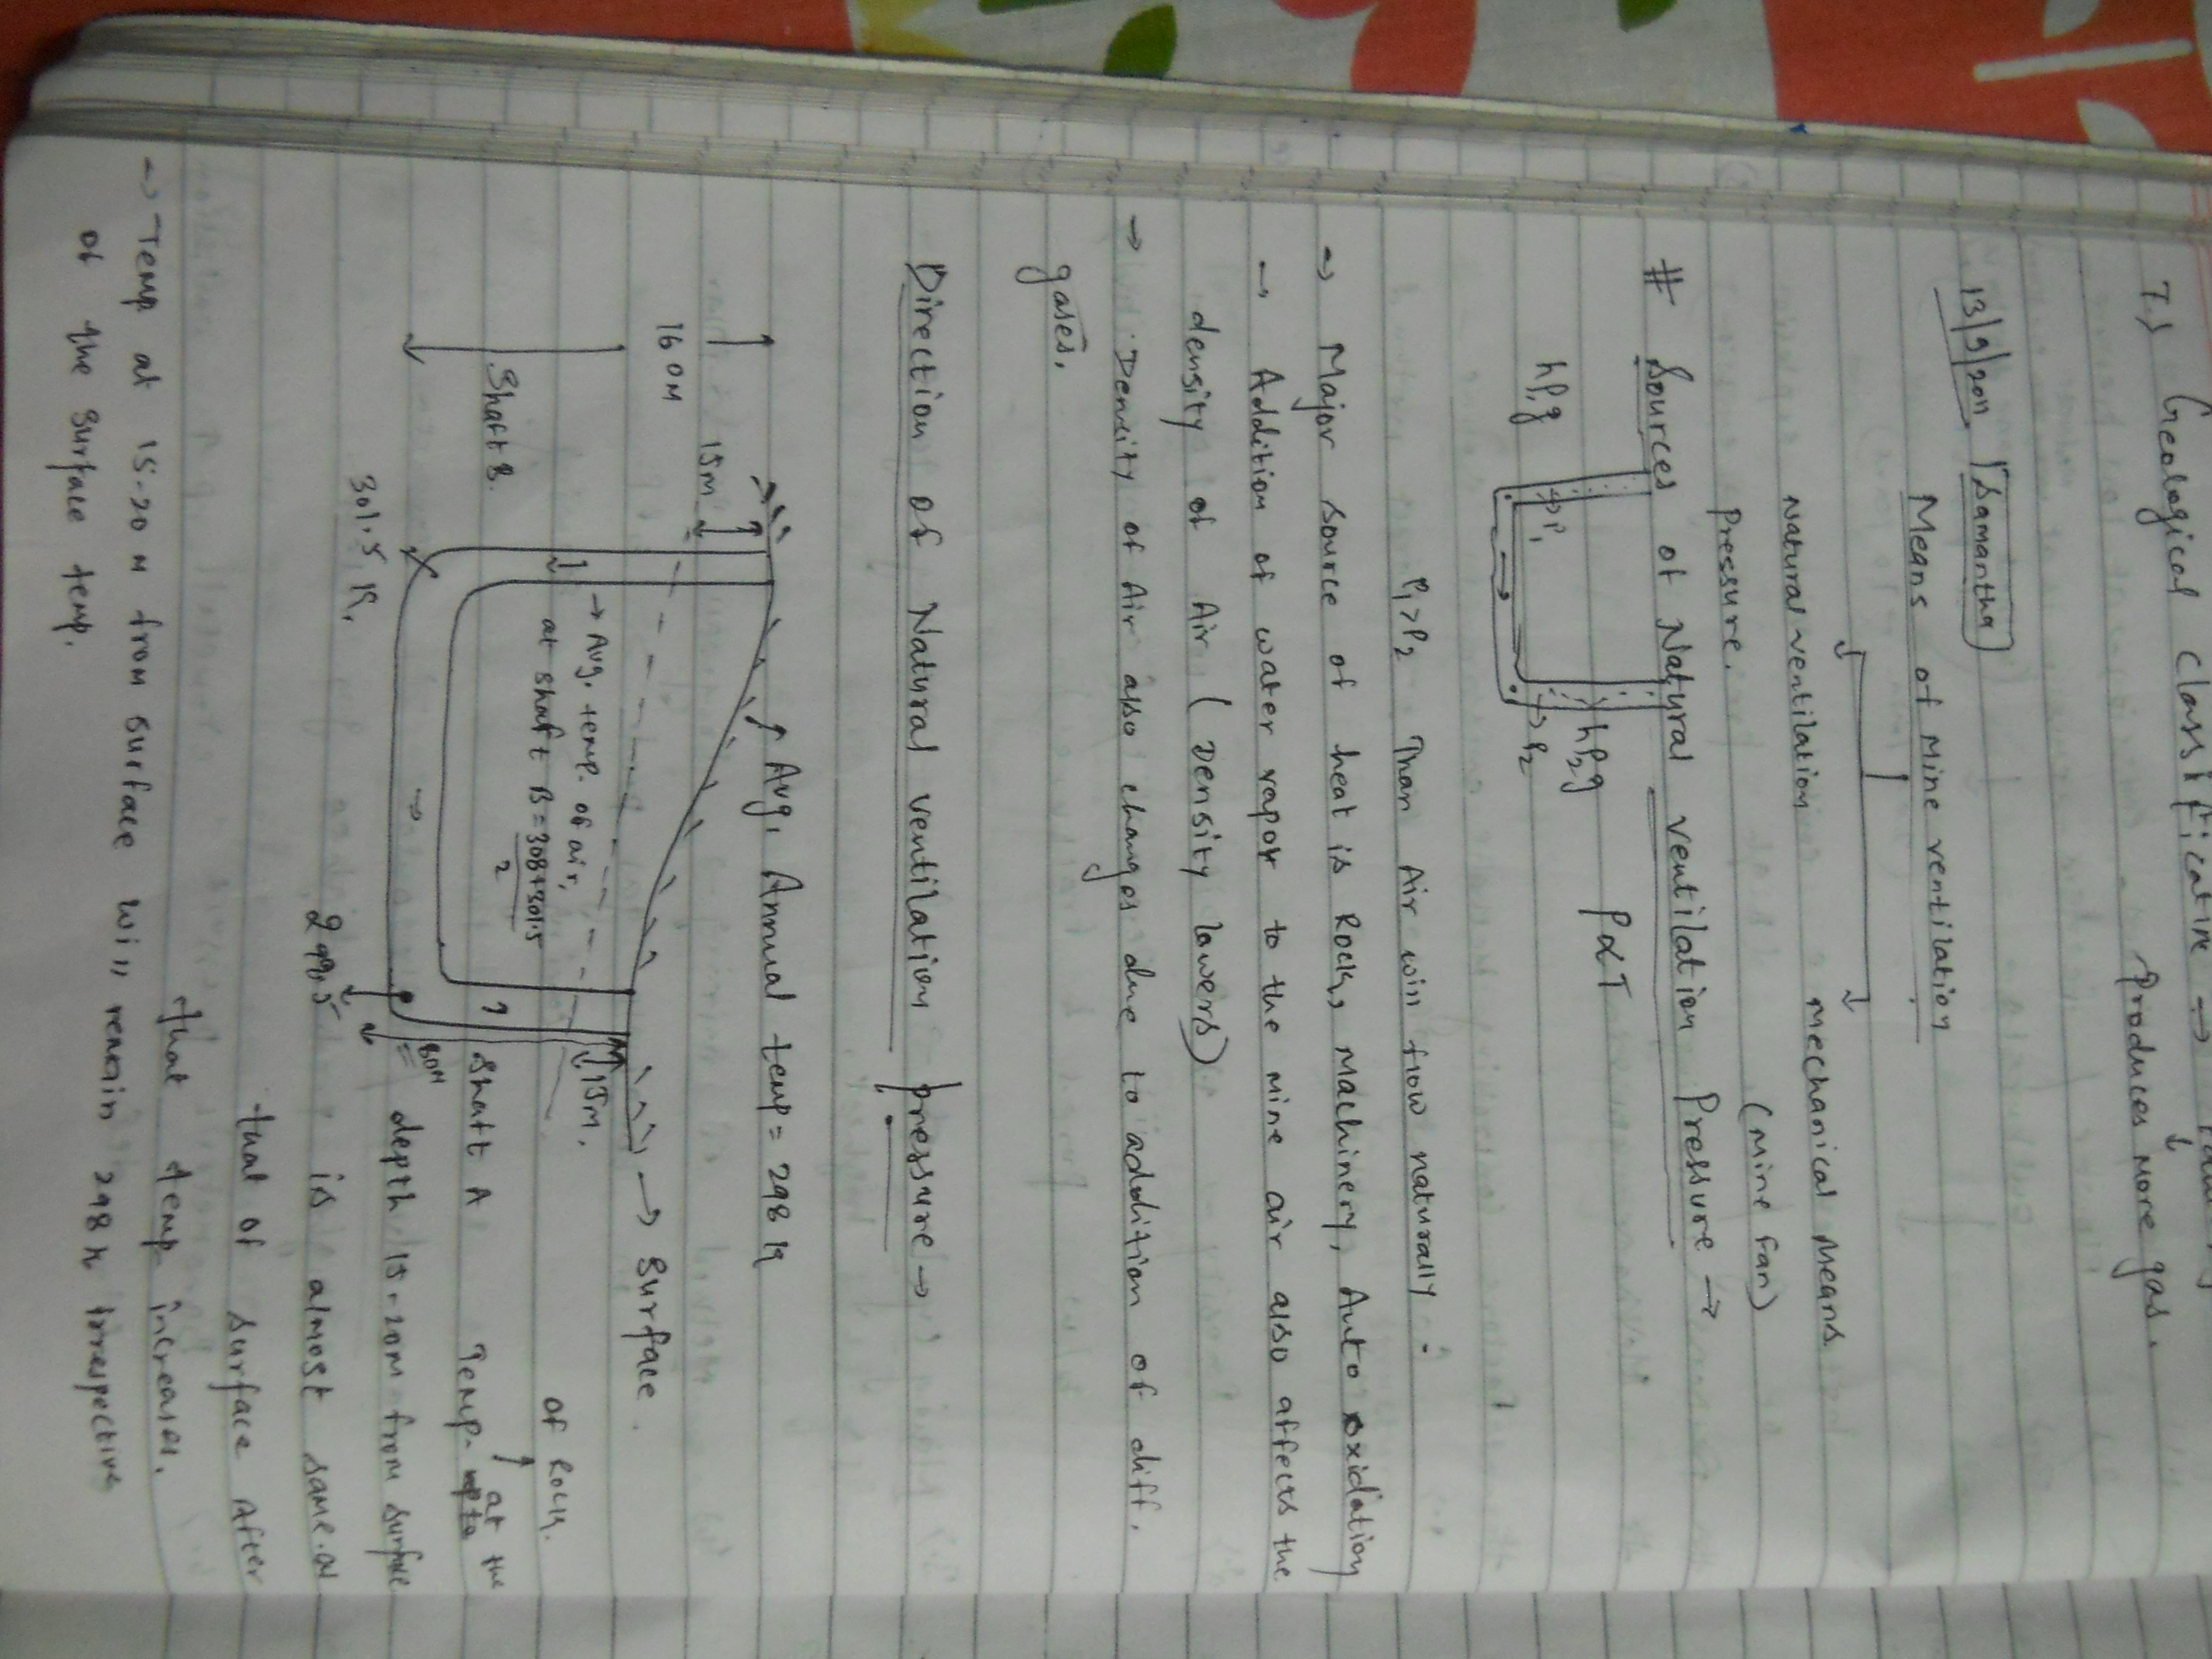 7.) Geological classification →
Produces more gas.
13/9/2011 Samantha
Means of Mine ventilation
Natural ventilation Mechanical Means
Pressure. (Mine Fan)
# Sources of Natural ventilation Pressure →
P∝T
hρ₁g hρ₂g
P₁ P₂
P₁>P₂ Than Air will flow naturally.
→ Major source of heat is Rock, machinery, Auto oxidation
→ Addition of water vapor to the mine air also affects the
density of Air (Density lowers)
→ Density of Air also changes due to addition of diff.
gases.
Direction of Natural ventilation pressure →
Avg. Annual temp = 298 K
15m
160M
→ Surface.
15m.
→ Avg. temp. of air,
at shaft B = 308+301.5
2
Shaft B.
Shaft A
80M
301.5 K,
299.5
of Rock.
Temp. upto at the
depth 15-20m from surface
is almost same as
that of surface After
that temp increases.
→ Temp at 15-20 m from surface will remain 298 K irrespective
of the surface temp.